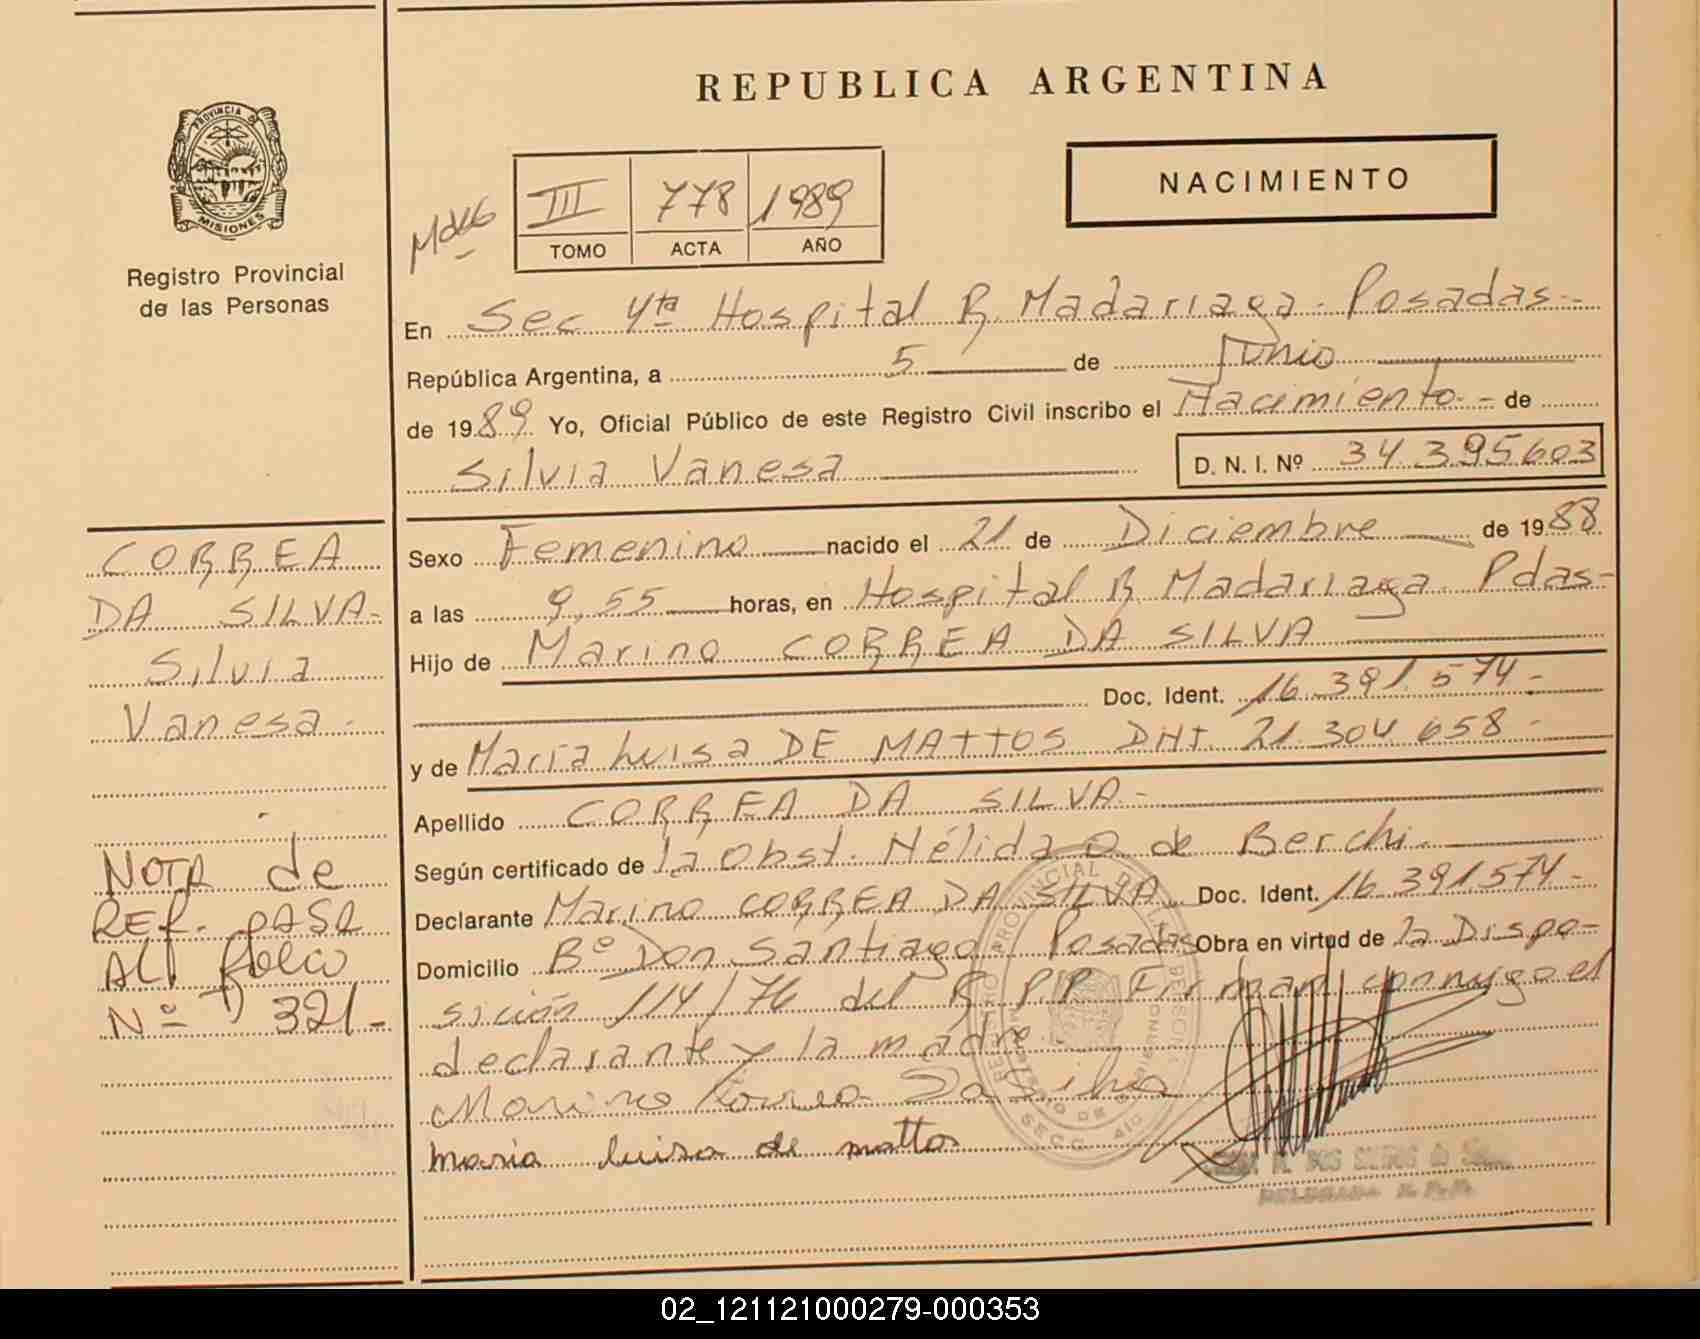 REPUBLICA ARGENTINA
PROVINCIA DE
MISIONES
Registro Provincial
de las Personas
NACIMIENTO
III 778 1989
TOMO ACTA AÑO
En Sec 4ta Hospital R. Madariaga - Posadas -
República Argentina, a 5 de Junio
de 1989 Yo, Oficial Público de este Registro Civil inscribo el Nacimiento - de
Silvia Vanesa D. N. I. Nº 34.395603
Sexo Femenino nacido el 21 de Diciembre de 1988
a las 9,55 horas, en Hospital R Madariaga. Pdas-
Hijo de Marino CORREA DA SILVA
Doc. Ident. 16.391.574-
y de María Luisa DE MATTOS DNI. 21.304.658-
Apellido CORREA DA SILVA-
Según certificado de la Obst. Nélida O de Berchi.
Declarante Marino CORREA DA SILVA Doc. Ident. 16.391.574-
Domicilio Bº Don Santiago Posadas Obra en virtud de la Dispo-
sición 114/76 del R.P.P. Firman conmigo el
declarante y la madre
Marino Correa Da Silva
maria luisa de mattos
CORREA
DA SILVA-
Silvia
Vanesa-
NOTA de
REF. PASA
AL folio
Nº 321-
02_121121000279-000353